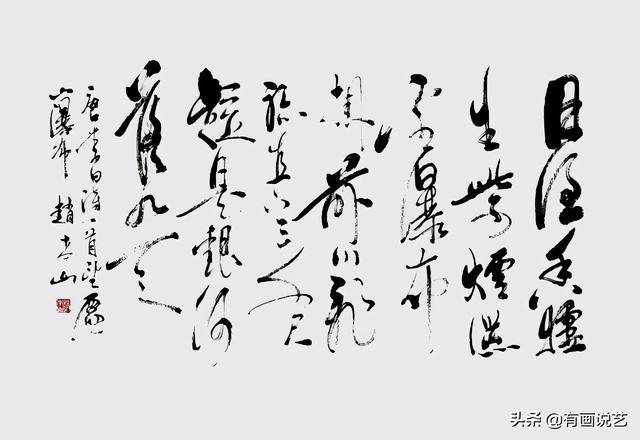 日照香爐
生紫煙遥
看瀑布
掛前川飛
流直下三千尺
疑是銀河
落九天
唐李白詩一首望廬
山瀑布 趙山
头条 @有画说艺